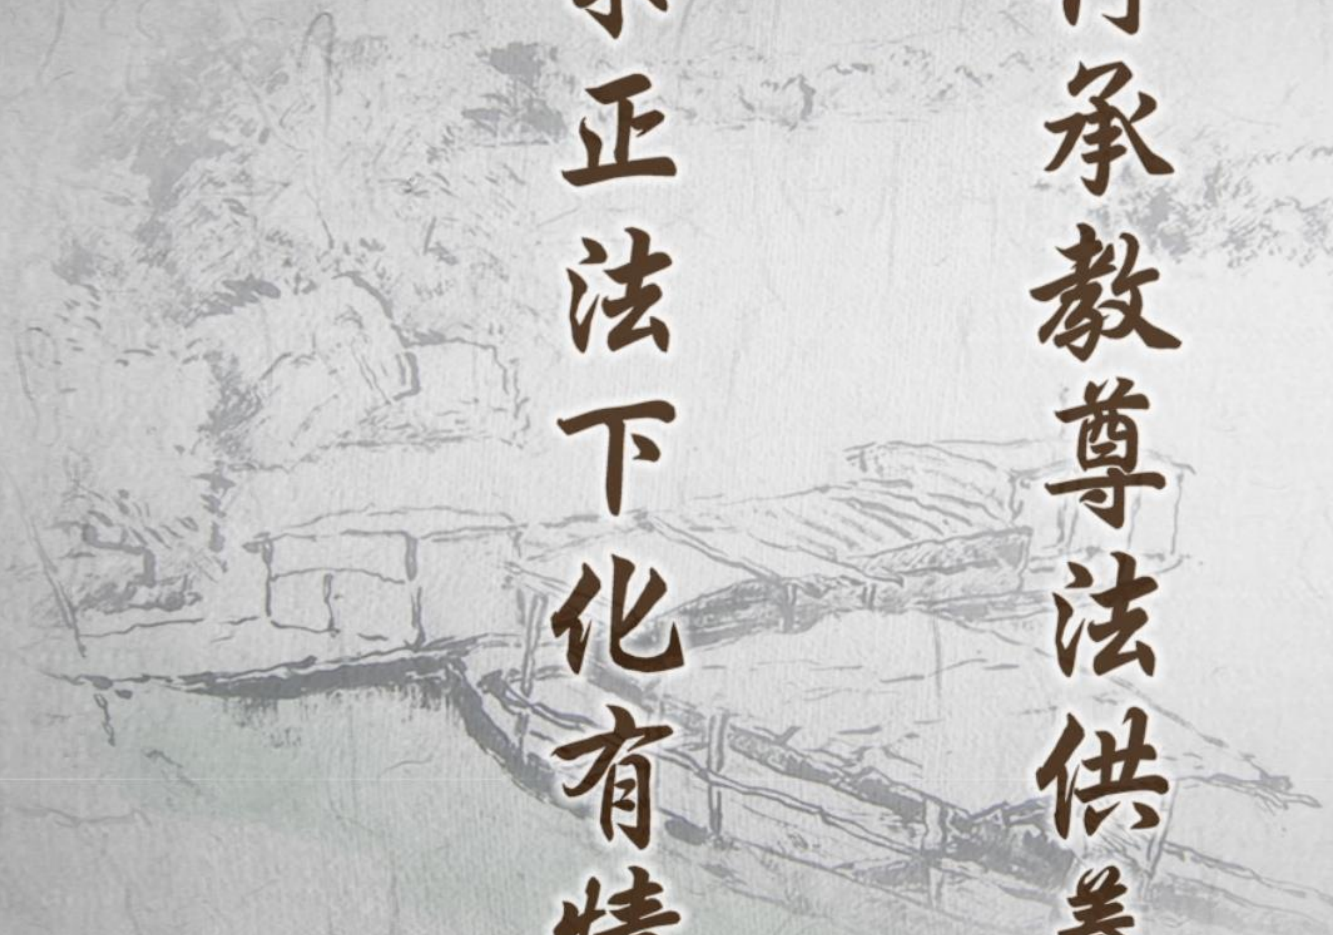 承教尊法供養
正法下化有情